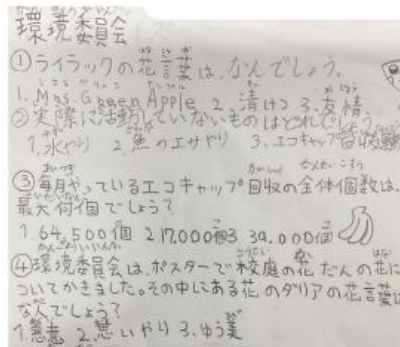 環境委員会
①ライラックの花言葉は、なんでしょう。
1. Mrs. Green Apple 2 清けつ 3. 友情
②実際に活動していないものはどれでしょう。
1.水やり 2.魚のエサやり 3.エコキャップ回収運動
③毎月やっているエコキャップ回収の全体個数は、
最大何個でしょう?
1 64,500個 2 17,000個 3 39,000個
④環境委員会は、ポスターで校庭の花だんの花に
ついてかきました。その中にある花のダリアの花言葉は
なんでしょう?
2.思いやり 3.ゆう美